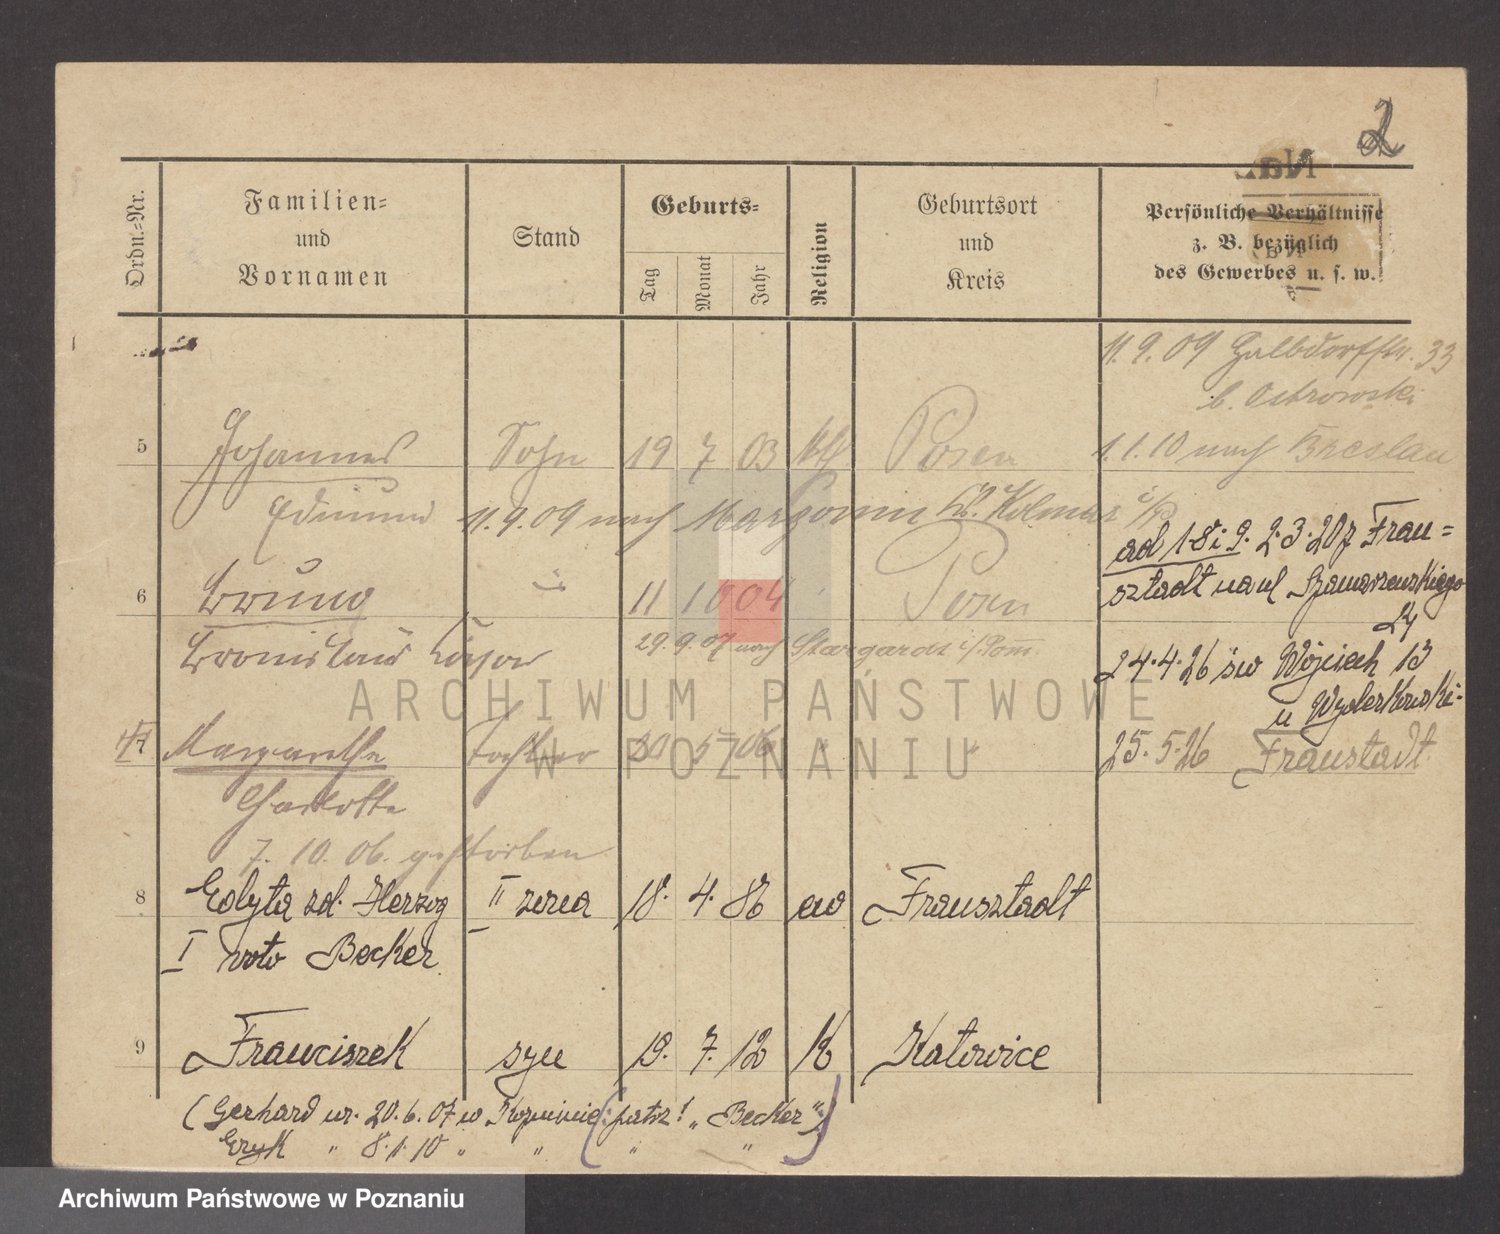 2
Ordn.-Nr.
Familien-
und
Vornamen
Stand
Geburts-
Tag
Monat
Jahr
Religion
Geburtsort
und
Kreis
Persönliche Verhältnisse
z. B. bezüglich
des Gewerbes u. s. w.
11. 9. 09 33
b. Ostrowski
5 Johannes Sohn 19 7 03 kth Posen 1. 1. 10 nach Breslau
Edmund 11. 9. 09 nach Margonin Kr. Kolmar i/P
ad 1-8 i 9. 2·3·20 z Frau=
6 Bruno " 11 10 04 Posen
sztadt na ul Szamarzewskiego
Bronislaus 29. 9. 07 nach Stargardt i/Pom.
24·4·26 św Wojciech 13
u Wyderkowski-
7 Margarethe Tochter 20 5 06 " " 25. 5·26 Fraustadt
Charlotte
7. 10. 06. gestorben
8 Edyta zd. Herzog II żona 18. 4. 86 ew Frausztadt
I voto Becker
9 Franciszek syn 19. 7. 12 K Katowice
(Gerhard ur. 20. 6. 07 w (patrz! „Becker")
Eryk " 8. 1. 10 " " " "
ARCHIWUM PAŃSTWOWE
W POZNANIU
Archiwum Państwowe w Poznaniu